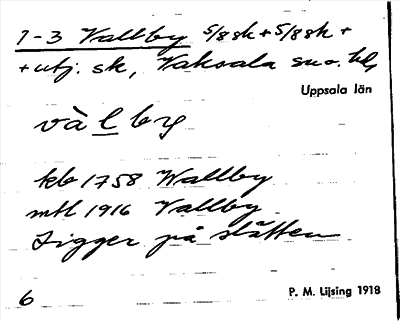 1-3 Vallby 5/8 sk + 5/8 sk +
+ utj. sk, Vaksala sn o. hd
Uppsala län
vàlby
kb 1758 Wallby
mtl 1916 Vallby
Ligger på slätten
6
P. M. Lijsing 1918